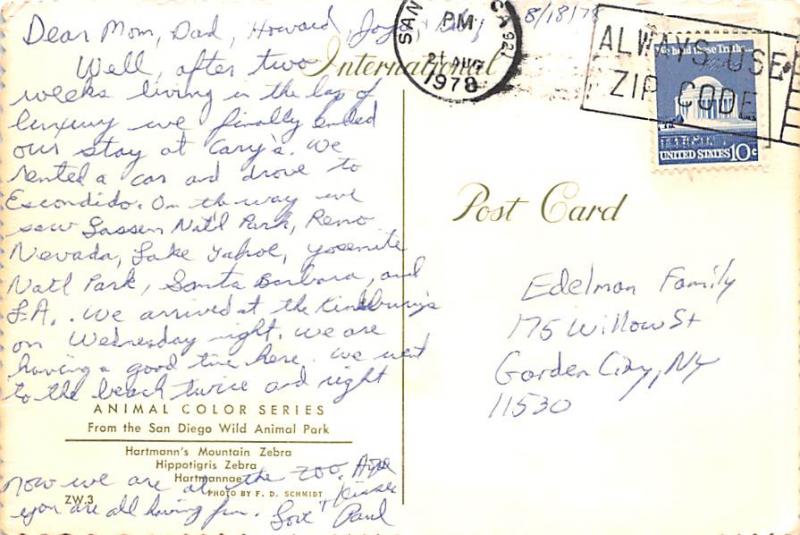 8/18/78
Dear Mom, Dad, Howard,
Well, after two
weeks living in the lap of
luxury we finally ended
our stay at Cary's. We
rented a car and drove to
Escondido. On the way we
saw Lassen Nat'l Park, Reno
Nevada, Lake Tahoe, Yosemite
Natl Park, Santa Barbara, and
L.A.. We arrived at the
on Wednesday night. We are
having a good time here. We went
to the beach twice and right
now we are at the zoo. Hope
you are all having fun. Love + Kisses
Paul
ANIMAL COLOR SERIES
From the San Diego Wild Animal Park
Hartmann's Mountain Zebra
Hippotigris Zebra
Hartmannae
PHOTO BY F. D. SCHMIDT
ZW.3
International
Post Card
SAN CA 921
PM
21 AUG
1978
ALWAYS USE
ZIP CODE
We hold these Truths
UNITED STATES 10c
Edelman Family
175 Willow St
Garden City, NY
11530